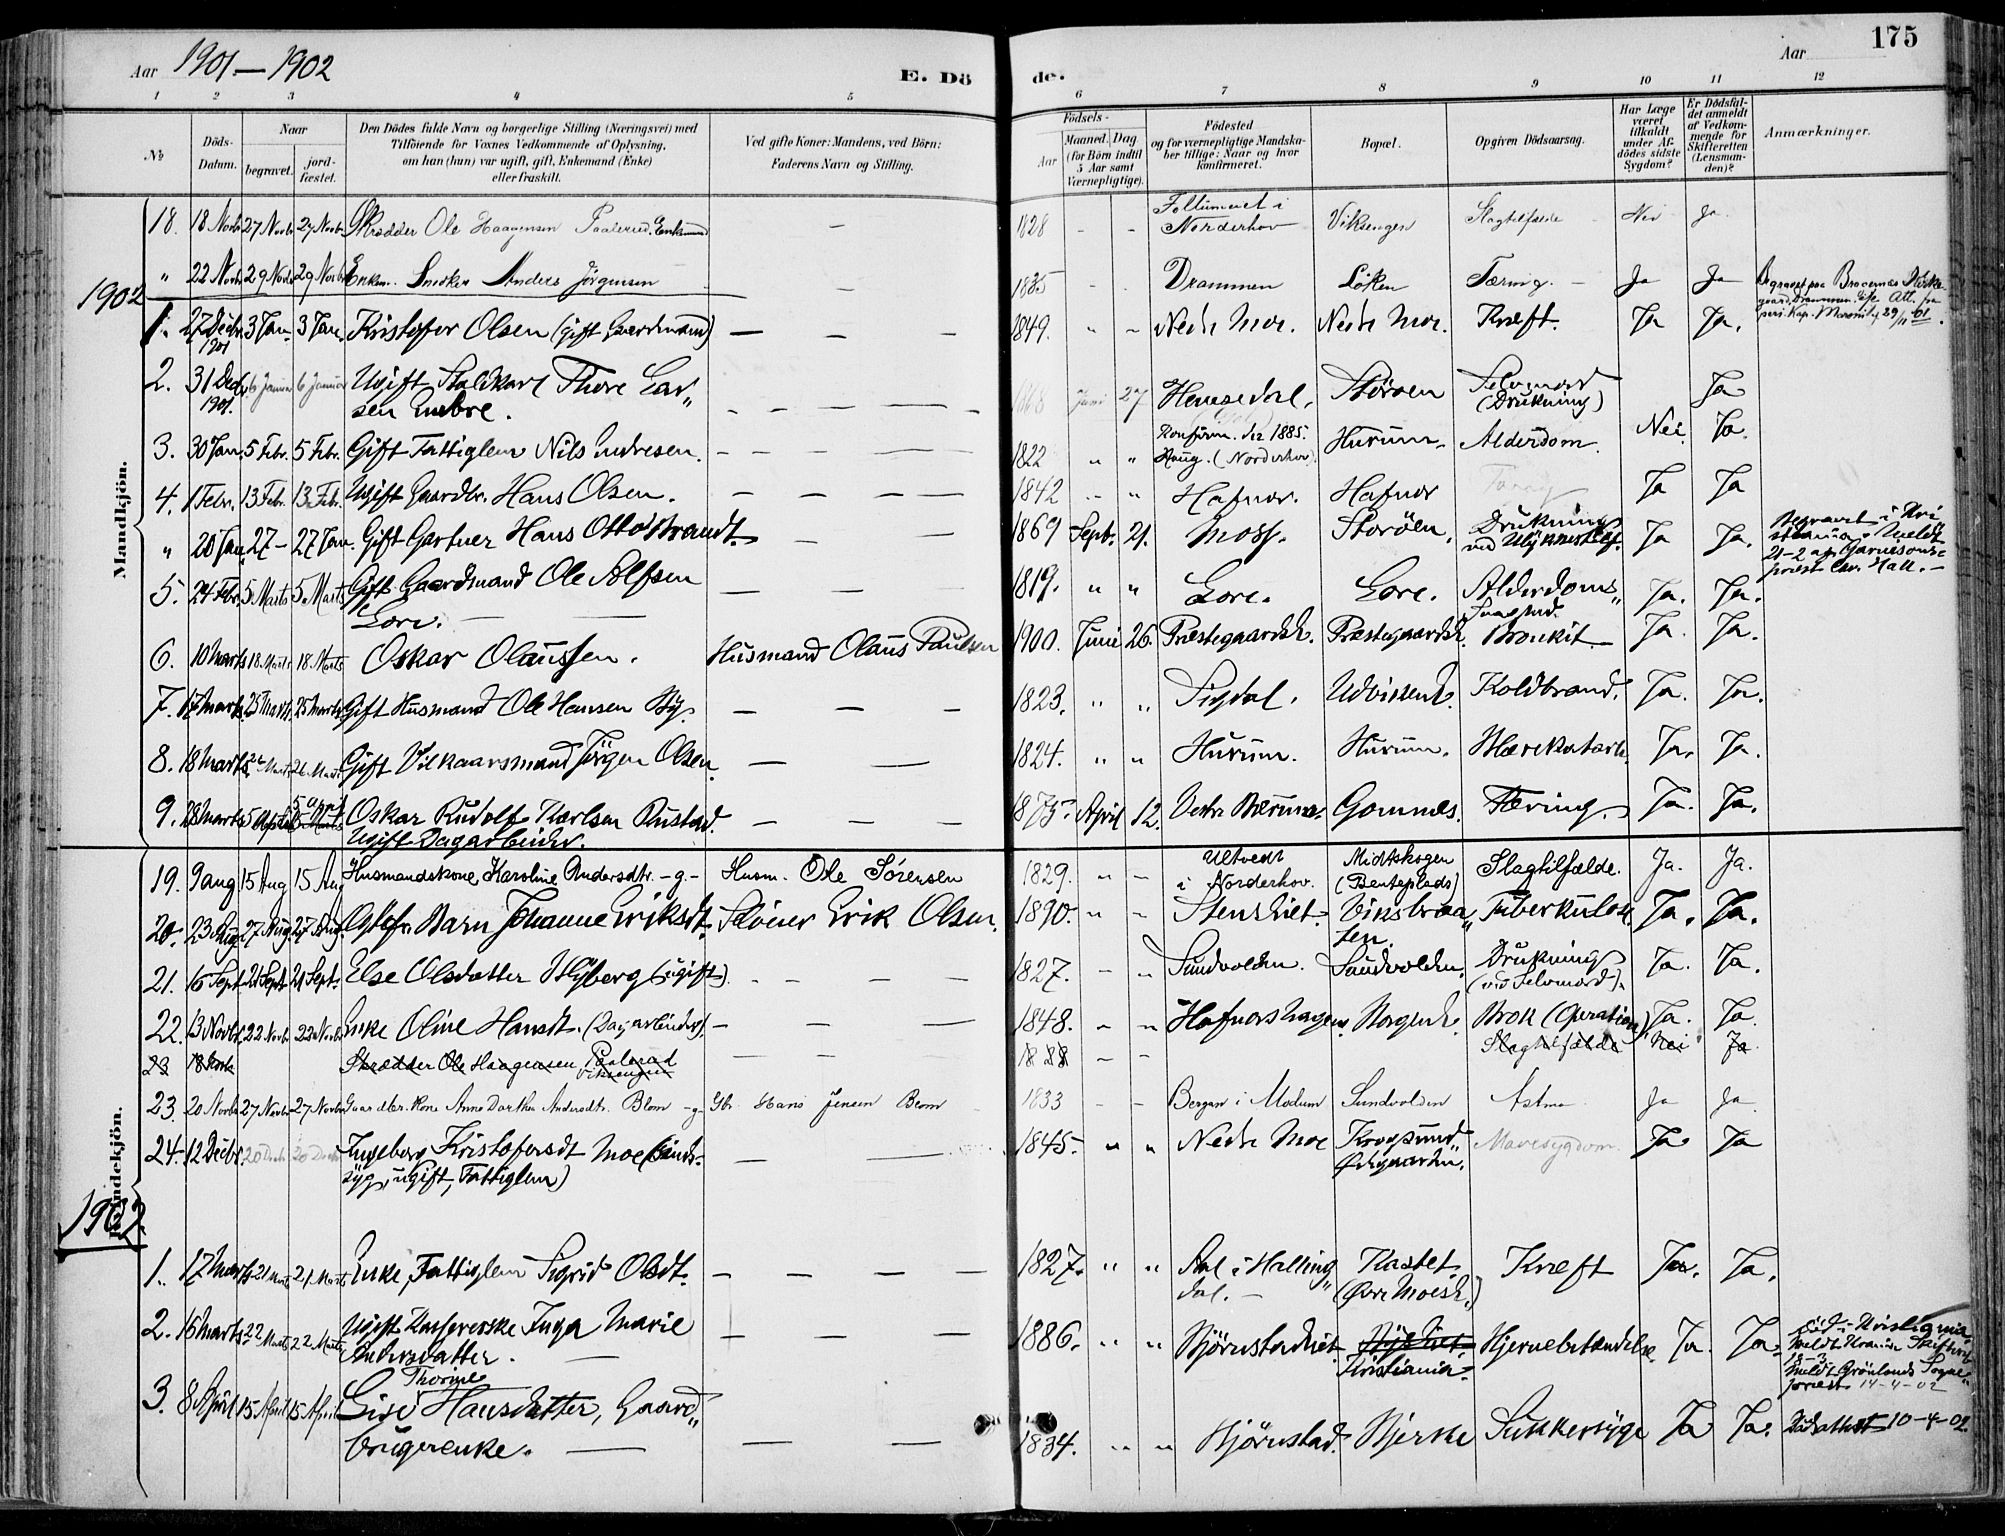 Aar 1901—1902
E. Döde.
Aar 175
1 2 3 4 5 6 7 8 9 10 11 12
No.
Döds-Datum.
Naar
begravet.
jordfæstet.
Den Dödes fulde Navn og borgerlige Stilling (Næringsvei) med
Tilföiende for Voxnes Vedkommende af Oplysning,
om han (hun) var ugift, gift, Enkemand (Enke)
eller fraskilt.
Ved gifte Koner: Mandens, ved Börn:
Faderens Navn og Stilling.
Födsels-
Aar
Maaned. Dag
(for Börn indtil
5 Aar samt
Værnepligtige).
Födested
og for værnepligtige Mandskaber
tillige: Naar og hvor
konfirmeret.
Bopæl.
Opgiven Dödsaarsag.
Har Læge været tilkaldt under Afdödes sidste Sygdom?
Er Dödsfaldet anmeldt af Vedkommende for Skifteretten (Lensmanden)?
Anmærkninger.
Mandkjön.
18. 18 Novbr 27 Novbr 27 Novbr Skrædder Ole Haagensen Paalerud. Enkemand — 1828 - - Feltumeret i Norderhov Viksengen Slagtilfælde Nei Ja
" 22 Novbr 29 Novbr 29 Novbr Enkem. Snedker Anders Jörgensen 1835 - - Drammen Löken Tæring. Ja Ja Begravet paa Bragernes Kirkegaard, Drammen
1902
1. 27 Decbr. 1901 3 Jan. 3 Jan. Kristofer Olsen (gift Gaardmand) — — — 1849. " " Nedr Moe. Nedr Moe. Kræft. Ja Ja.
2. 31 Decbr. 1901. 6 Januar 6 Januar Ugift Staldkarl Thore Larsen Embre. 1868 Juni 27 Hemsedal, Konfirm. 1885. Störöen Selvmord (Drukning) Ja
3. 30 Jan. 5 Febr. 5 Febr. Gift Fattiglem Nils Endresen. 1822 " " Haug. (Norderhov) Hurum. Alderdom. Nei. Ja.
4. 1 Febr. 13 Febr. 13 Febr. Ugift Gaardbr. Hans Olsen. 1842 " " Hafnor. Hafnor Ja Ja
" 20 Jan. 27 — 27 Jan. Gift Gartner Hans Otto Strandt. 1869 Sept. 21. Moss. Storöen. Drukning ved Ulykkestilf. Ja Ja. Begravet i Kristiania
5. 24 Febr. 5 Marts 5 Marts Gift Gaardmand Ole Alfsen Gore. 1819. " " Gore. Gore. Alderdoms Svaghed. Ja. Ja.
6. 10 Marts 18 Marts 18 Marts Oskar Olaussen. Husmand Olaus Paulsen 1900. Juni 26. Præstegaardsh. Præstegaardsh. Bronkit Ja. Ja.
7. 17 Marts 25 Marts 25 Marts Gift Husmand Ole Hansen By. 1823. " " Sigdal. Udvikseneh. Koldbrand. Ja. Ja.
8. 18 Marts 26 Marts 26 Marts Gift Vilkaarsmand Jörgen Olsen. 1824. " " Hurum. Hurum. Blærekatarh. Ja. Ja.
9. 28 Marts 5 April 5 April Oskar Rudolf Karlsen Rustad. Ugift Dagarbeider. 1875 April 12. Vestre Bærum. Gomnes. Tæring. Ja. Ja.
Kvindekjön.
19. 9 Aug 15 Aug 15 Aug Husmandskone Karoline Andersdtr. -g- Husm. Ole Sörensen 1829. " - Ultvedt i Norderhov. Midtskogen (Benteplads) Slagtilfælde. Ja. Ja.
20. 23 Aug 27 Aug. 27 Aug. Barn Johanne Eriksdt. Erik Olsen. 1890. " - Stenshiet Viksbraaten. Tuberkulose Ja. Ja.
21. 16 Sept 21 Sept 21 Sept. Else Olsdatter Hyberg (ugift). 1827. - " Sundvolden. Sundvolden. Drukning (ved Selvmord). Ja. Ja.
22. 13 Novbr. 22 Novbr 22 Novbr Enke Oline Hansdt. (Dagarbeider). 1848. " " Hafnorshagen. Borgenh. Brok (Operation) Ja. Ja.
23 18 Novbr Skrædder Ole Haagensen Paalerud Viksengen 1828 - - Slagtilfælde Nei Ja
23. 20 Novbr 27 Novbr 27 Novbr Gaardbr. Kone Anne Dorthea Andersdtr. Blom -g- Gbr. Hans Jensen Blom 1833 - - Bergan i Modum Sundvolden Astma Ja Ja
24. 12 Decbr. 20 Decbr 20 Decbr Ingeborg Kristofersdt Moe (sindssyg, ugift, Fattiglem) 1845. " " Nedr Moe Krogsund, Mavesygdom. Ja Ja
1902
1. 17 Marts 21 Marts 21 Marts Enke, Fattiglem Sigrid Olsdt. 1827. " " Aal i Hallingdal. Kastet (Övre Moesh.) Kræft Ja. Ja.
2. 16 Marts 22 Marts 22 Marts Ugift Kassererske Inga Marie Andersdatter. 1886. " " Björnstadhiet. Kristiania. Hjernebetændelse. Ja. Ja. Död i Kristiania Meldt Grönlands Sognepræst 14-4-02
3. 8 April 15 April 15 April Lise Thorine Hansdatter, Gaardbrugerenke. 1834. " " Björnstad. Bjerke Sukkersyge Ja Ja. Dödsattest 10-4-02.